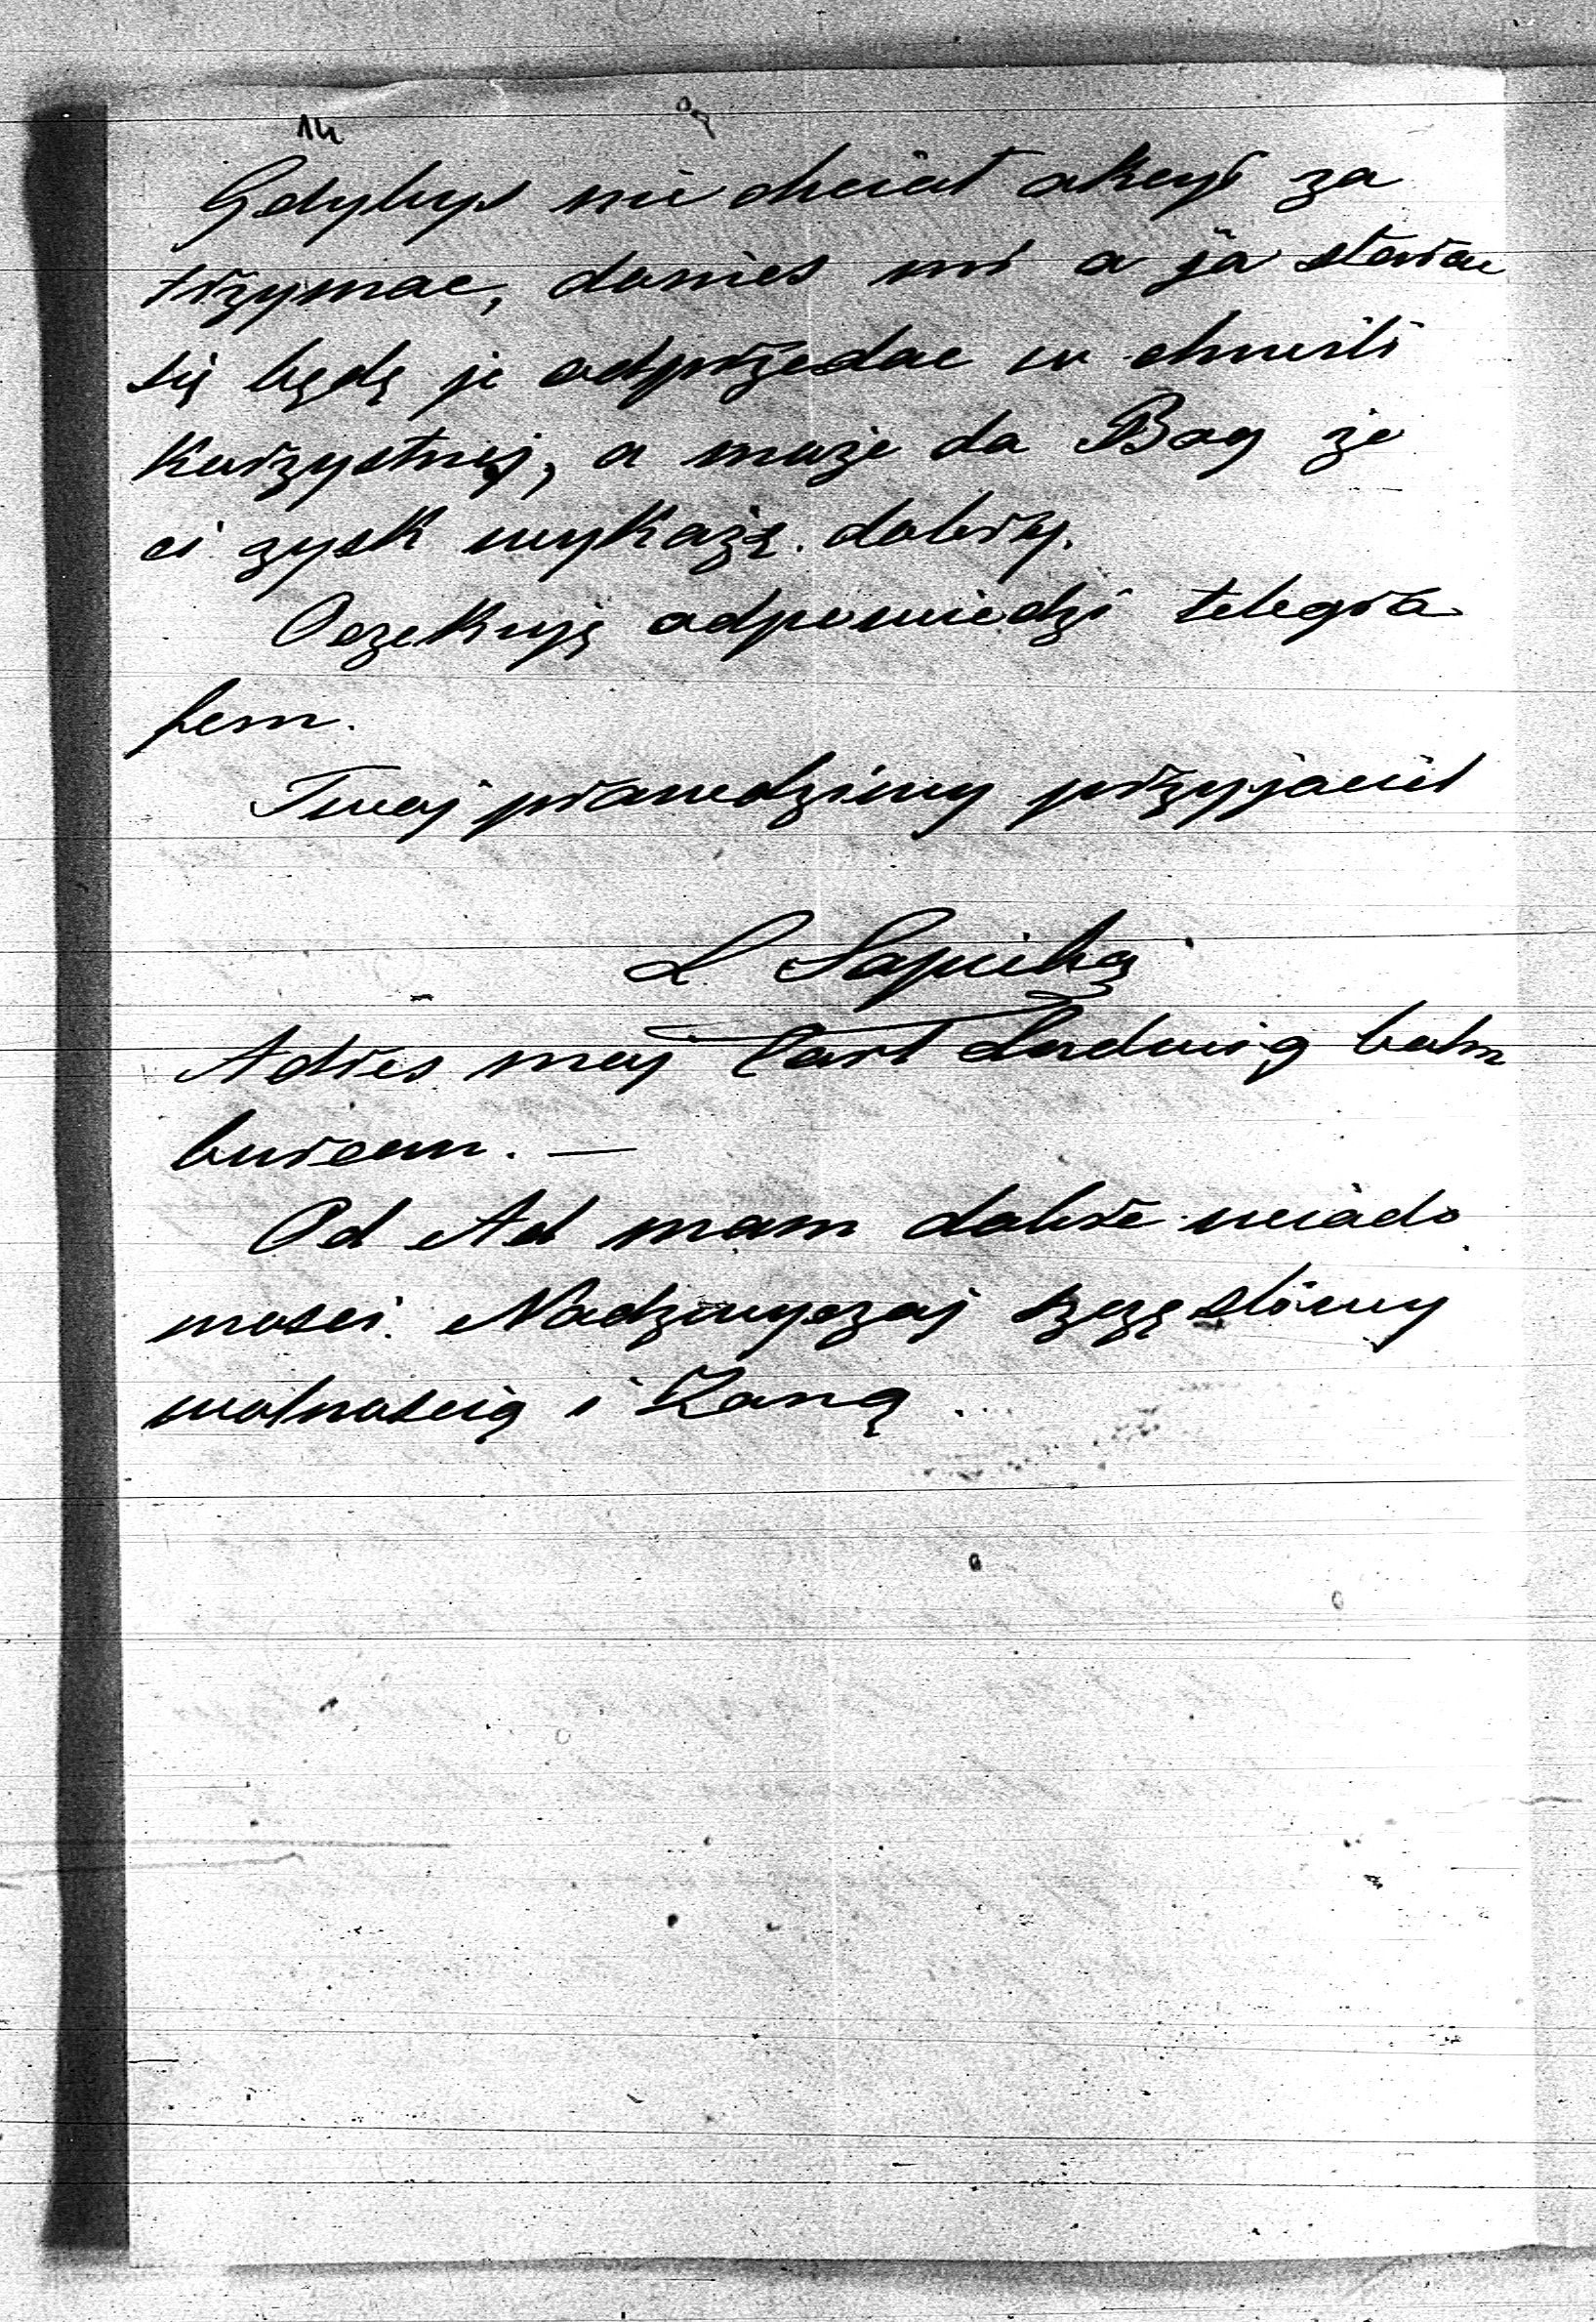 14
Gdybyś nie chciał akcyi za
trzymac, donies mi a ja starau
się będę je odprzedac w chwili
Korzystnej, a może da Bog że
ci zysk wykażę dobry.
Oczekuję odpowiedzi telegra
fem.
Twoj prawdziwy przyjaciel
L Sapieha
Adres moj Carl Ludwig bahn
bureau. —
Od Ad mam dobre wiado
mosci. Nadzwyczaj szczęsliwy
wolnoscią i Żoną.